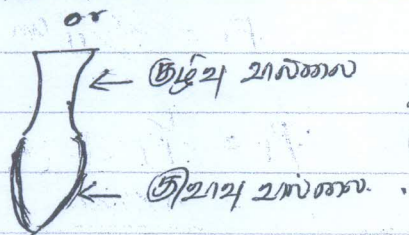 or
குழிவு வில்லை
குவிவு வில்லை.